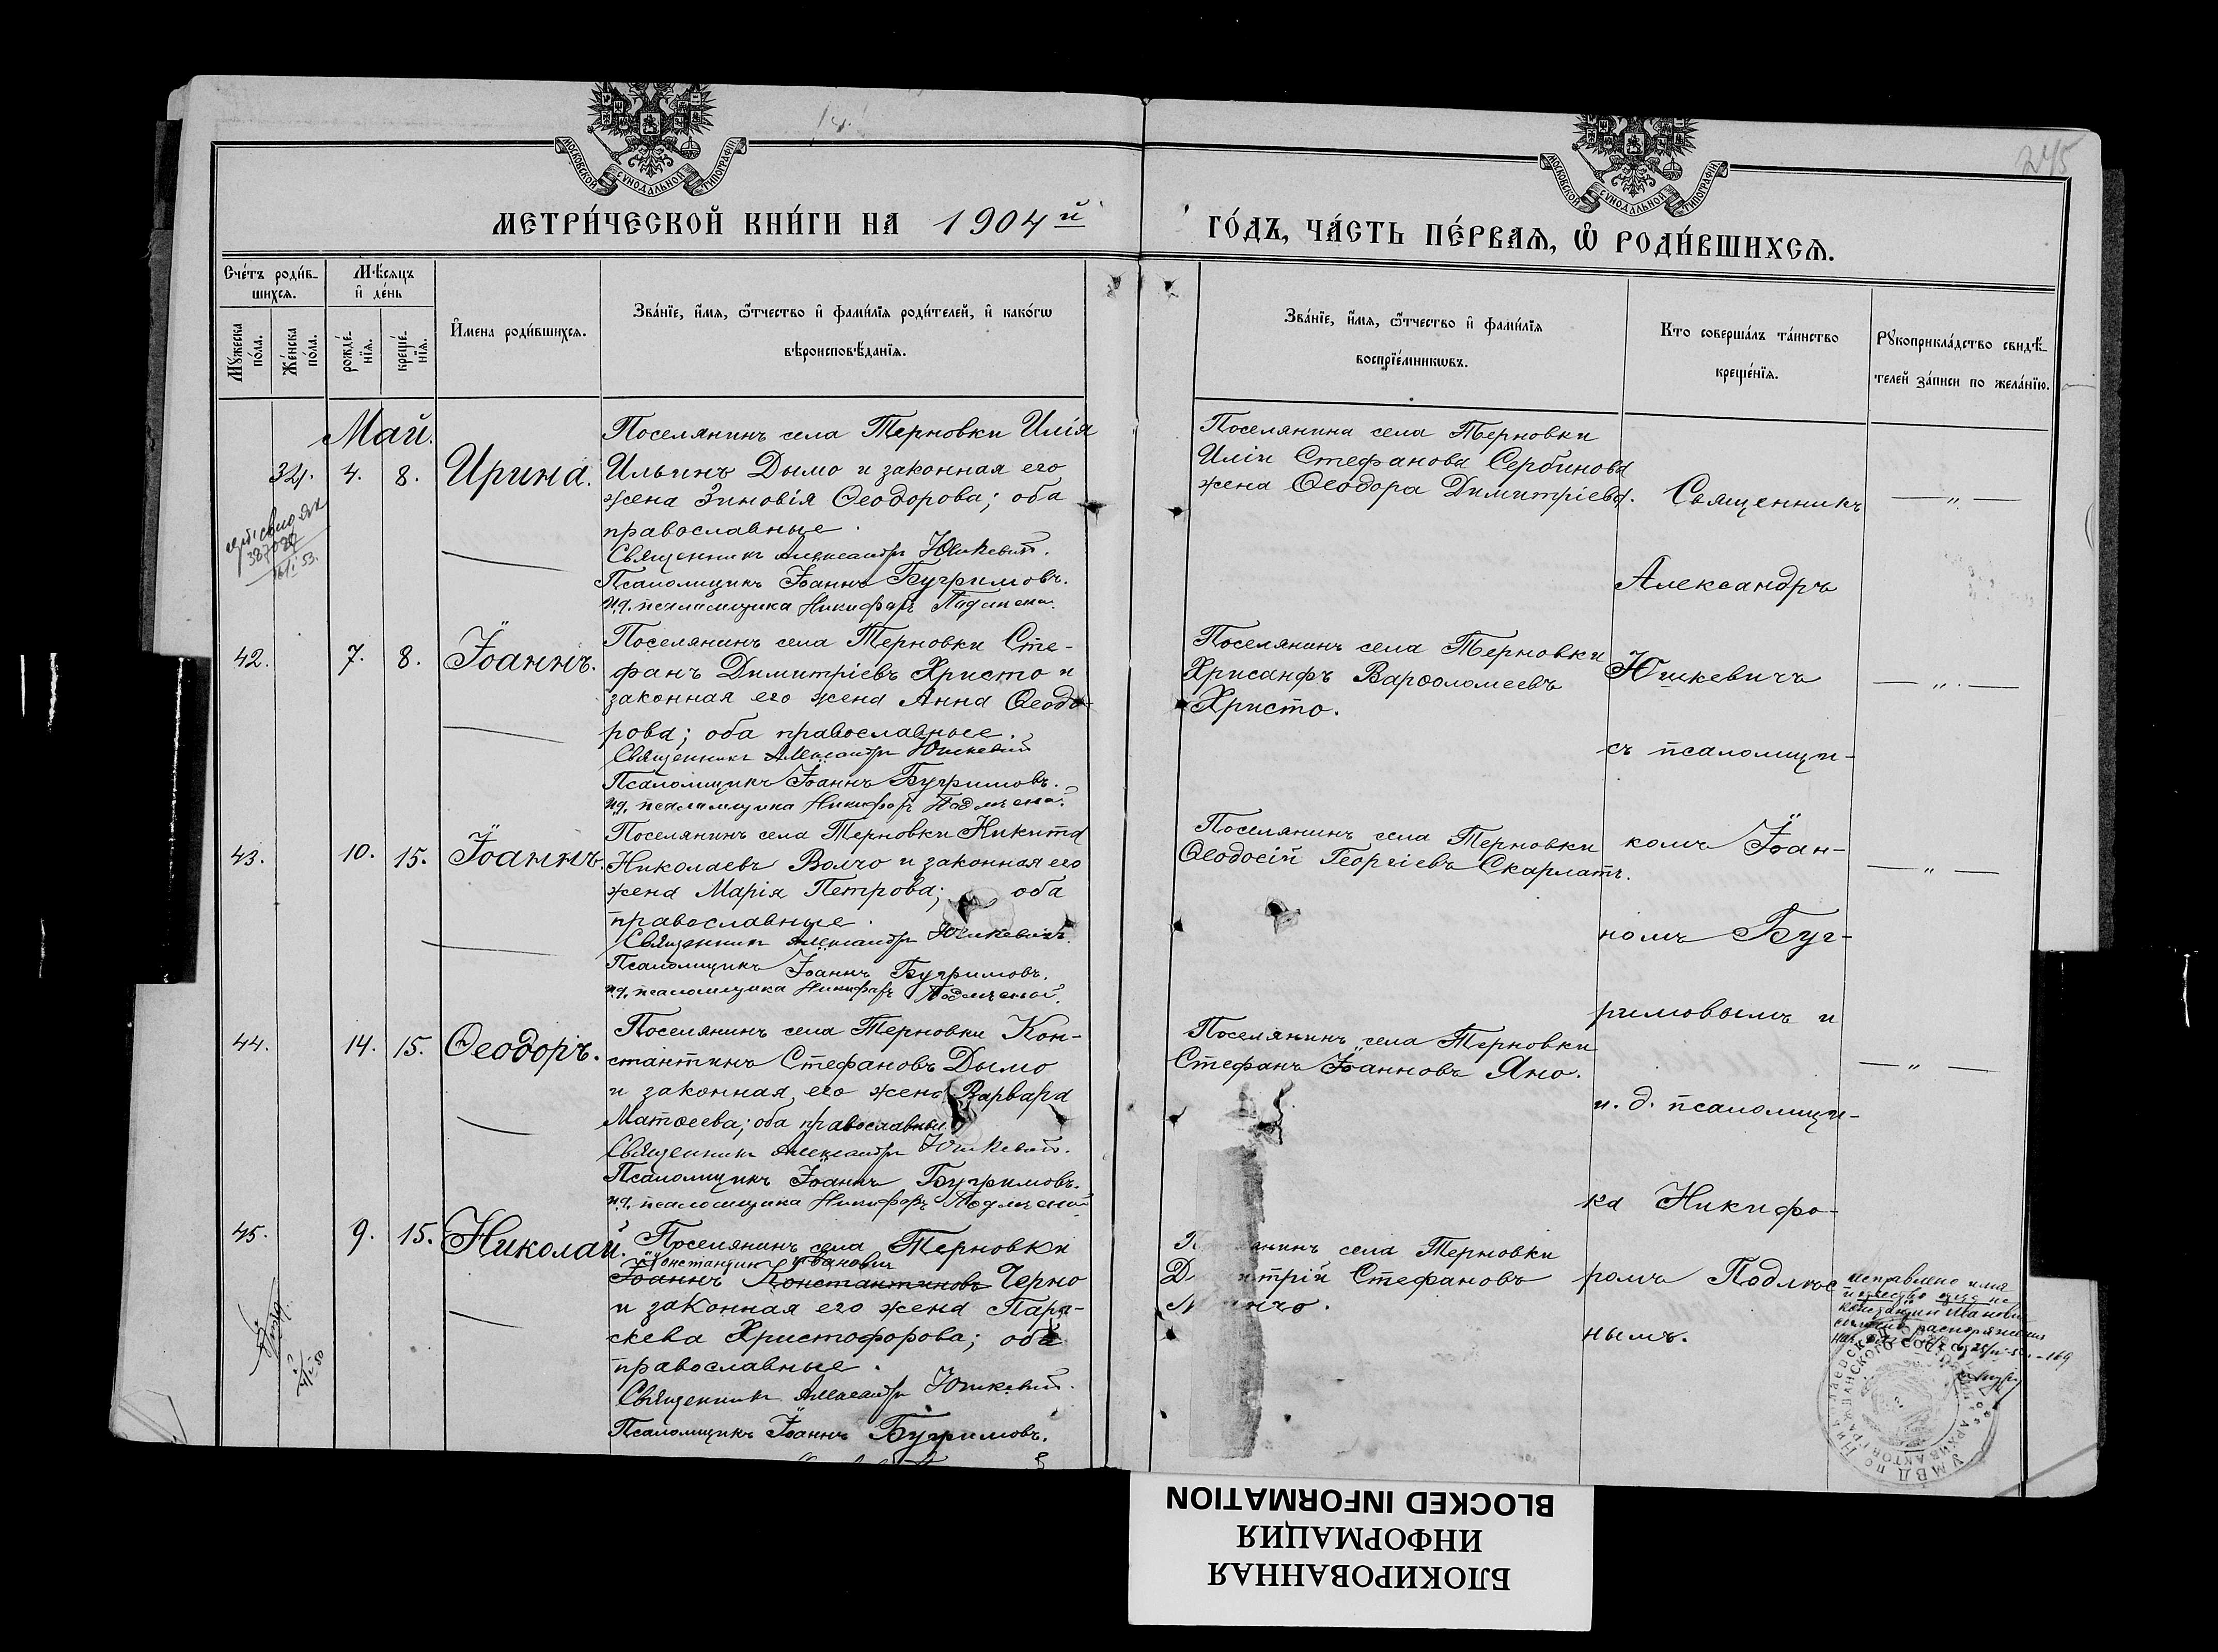 МОСКОВСКОЙ СѴНОДАЛЬНОЙ ТИПОГРАФІИ
МОСКОВСКОЙ СѴНОДАЛЬНОЙ ТИПОГРАФІИ
245
МЕТРИ́ЧЕСКОЙ КНИ́ГИ НА 1904й
ГО́ДЪ, ЧА́СТЬ ПЕ́РВАЯ, Ѡ҆ РОДИ́ВШИХСЯ.
Сче́тъ роди́в-
шихся.
Мужеска по́ла.
Же́нска по́ла.
Мѣ́сяцъ
и҆ де́нь
рожде́-
нїя.
креще́-
нїя.
И҆мена роди́вшихся.
Зва́нїе, и҆́мя, ѻ҆́тчество и҆ фами́лїя роди́телей, и҆ како́гѡ
вѣроисповѣ́данїя.
Зва́нїе, и҆́мя, ѻ҆́тчество и҆ фами́лїя
воспрїе́мникѡвъ.
Кто соверша́лъ та́инство
креще́нїя.
Рукоприкла́дство свидѣ́-
телей за́писи по жела́нїю.
Май.
34. 4. 8. Ирина.
Поселянинъ села Терновки Илія
Ильинъ Дымо и законная его
жена Зиновія Ѳеодорова; оба
православные.
Священникъ Александръ Юшкевичъ.
Псаломщикъ Іоаннъ Бугримовъ.
и.д. псаломщика Никифоръ
Поселянина села Терновки
Иліи Стефанова Сербинова
жена Ѳеодора Димитріева.
42. 7. 8. Іоаннъ.
Поселянинъ села Терновки Сте-
фанъ Димитріевъ Христо и
законная его жена Анна Ѳеодо-
рова; оба православные.
Священникъ Александръ Юшкевичъ
Псаломщикъ Іоаннъ Бугримовъ.
и.д. псаломщика Никифоръ
Поселянинъ села Терновки
Хрисанфъ Варѳоломеевъ
Христо.
43. 10. 15. Іоаннъ.
Поселянинъ села Терновки Никита
Николаевъ Волчо и законная его
жена Марія Петрова; оба
православные.
Священникъ Александръ Юшкевичъ.
Псаломщикъ Іоаннъ Бугримовъ.
и.д. псаломщика Никифоръ
Поселянинъ села Терновки
Ѳеодосій Георгіевъ Скарлатъ.
44. 14. 15. Ѳеодоръ.
Поселянинъ села Терновки Кон-
стантинъ Стефановъ Дымо
и законная его жена Варвара
Матѳеева; оба православные.
Священникъ Александръ Юшкевичъ.
Псаломщикъ Іоаннъ Бугримовъ.
и.д. псаломщика Никифоръ
Поселянинъ села Терновки
Стефанъ Іоанновъ Яно.
45. 9. 15. Николай.
Поселянинъ села Терновки
Константин Иванович
Іоаннъ Константиновъ Черно
и законная его жена Пара-
скева Христофорова; оба
православные.
Священникъ Александръ Юшкевичъ.
Псаломщикъ Іоаннъ Бугримовъ.
села Терновки
Стефановъ
Священникъ
Александръ
Юшкевичъ
съ псаломщи-
комъ Іоан-
номъ Буг-
римовымъ и
и. д. псаломщи-
ка Никифо-
ромъ Подлѣс-
нымъ.
исправлено имя
и отчество отца на
Константин Иванович
БЛОКИРОВАННАЯ
ИНФОРМАЦИЯ
BLOCKED INFORMATION